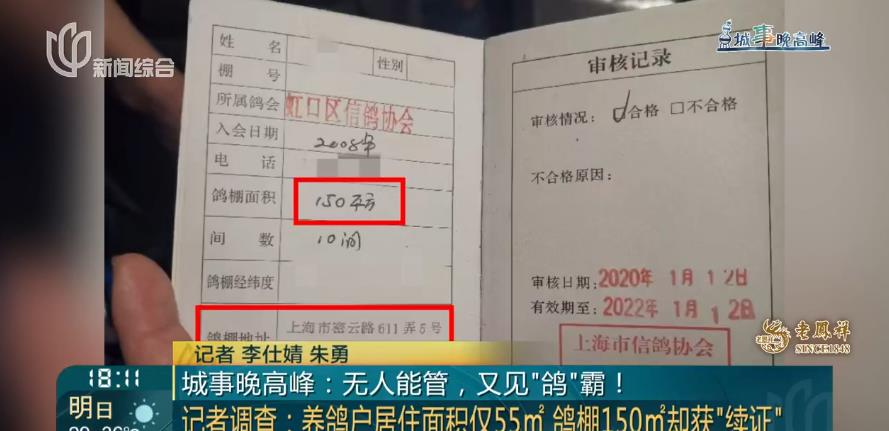 新闻综合
城事晚高峰
姓名
性别
棚号
所属鸽会 虹口区信鸽协会
入会日期 2008年
电话
鸽棚面积 150平方
间数 10间
鸽棚经纬度
鸽棚地址 上海市密云路611弄5号
审核记录
审核情况: ☑合格 □不合格
不合格原因:
审核日期: 2020年 1月 12日
有效期至: 2022年 1月 12日
上海市信鸽协会
老鳳祥
SINCE1848
记者 李仕婧 朱勇
18:11
城事晚高峰：无人能管，又见"鸽"霸！
明日
记者调查：养鸽户居住面积仅55㎡ 鸽棚150㎡却获"续证"